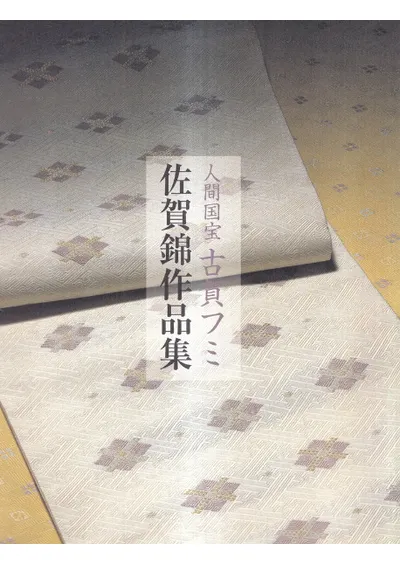 人間国宝 古賀フミ
佐賀錦作品集